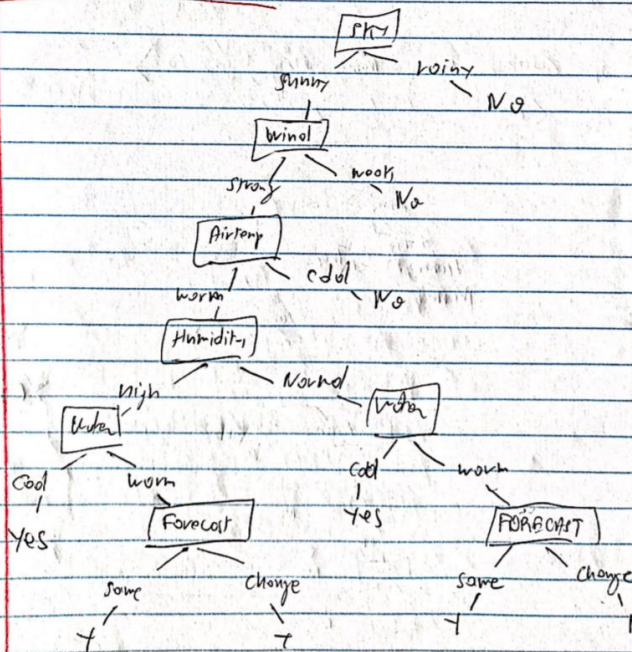 SKY
sunny rainy
No
Wind
strong weak
No
Airtemp
worm cool
No
Humidity
high Normal
Water Water
Cool worm cool worm
Yes Forecast Yes FORECAST
some change some change
Y Y Y